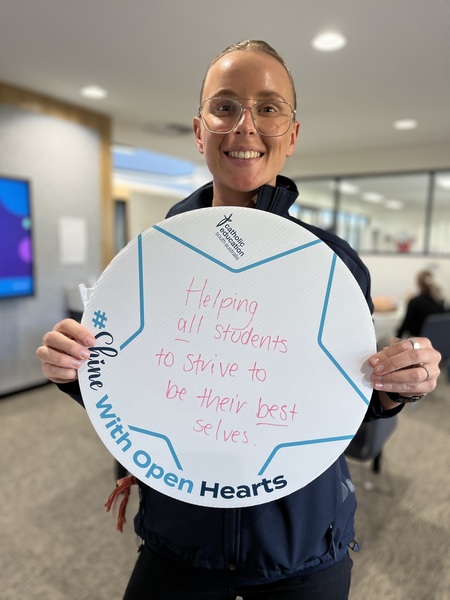 catholic
education
south australia
Helping
all students
to strive to
be their best
selves.
#Shine With Open Hearts